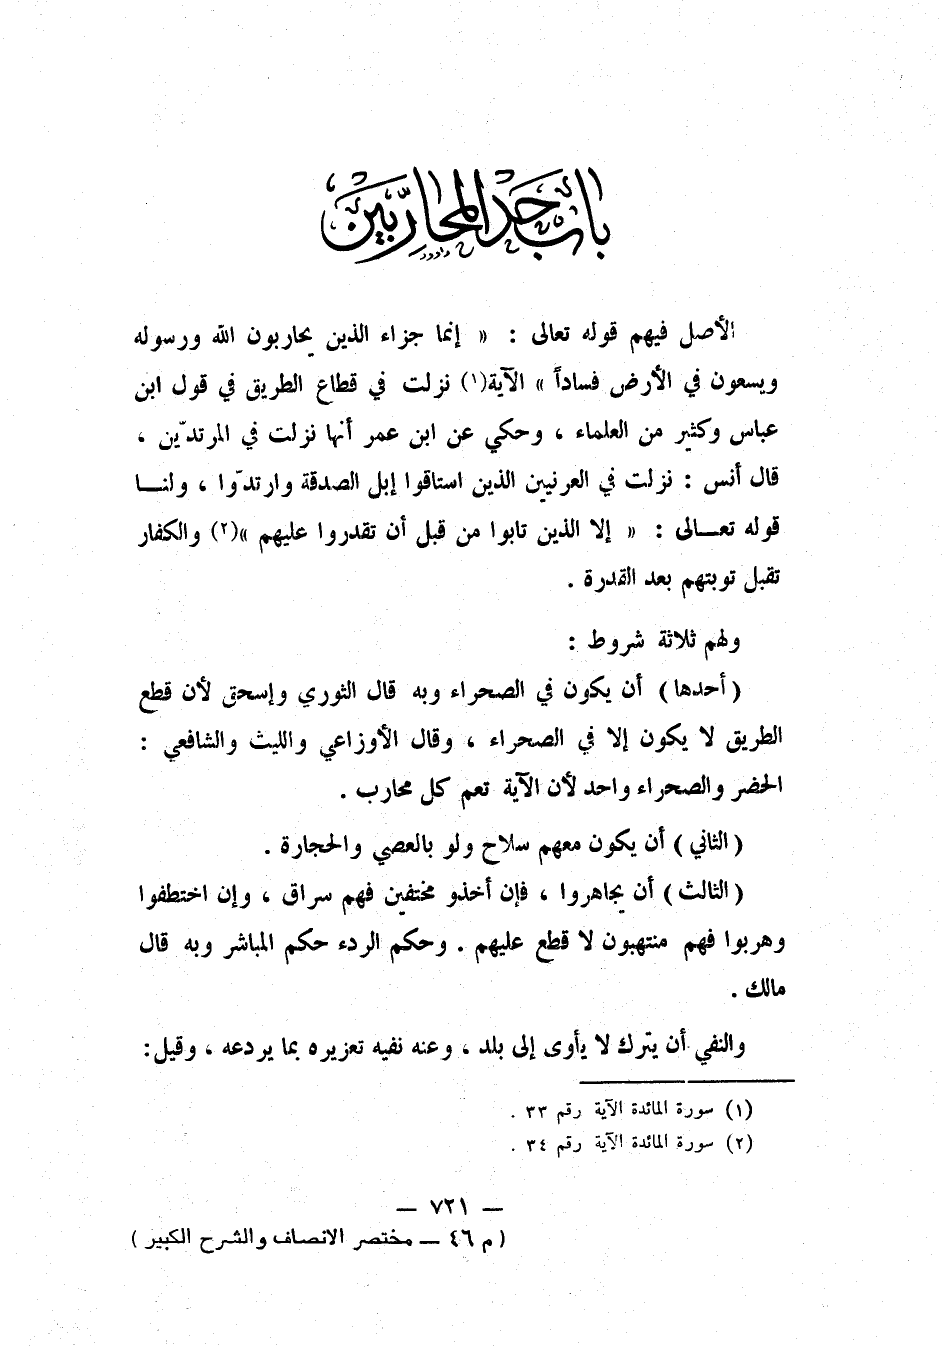 باب حد المحاربين
الأصل فيهم قوله تعالى : « إنما جزاء الذين يحاربون الله ورسوله
ويسعون في الأرض فساداً » الآية(١) نزلت في قطاع الطريق في قول ابن
عباس وكثير من العلماء ، وحكي عن ابن عمر أنها نزلت في المرتدّين ،
قال أنس : نزلت في العرنيين الذين استاقوا إبل الصدقة وارتدّوا ، ولنـــا
قوله تعـــالى : « إلا الذين تابوا من قبل أن تقدروا عليهم »(٢) والكفار
تقبل توبتهم بعد القدرة .
ولهم ثلاثة شروط :
(أحدها) أن يكون في الصحراء وبه قال الثوري وإسحق لأن قطع
الطريق لا يكون إلا في الصحراء ، وقال الأوزاعي والليث والشافعي :
الحضر والصحراء واحد لأن الآية تعم كل محارب .
(الثاني) أن يكون معهم سلاح ولو بالعصي والحجارة .
(الثالث) أن يجاهروا ، فإن أخذو مختفين فهم سراق ، وإن اختطفوا
وهربوا فهم منتهبون لا قطع عليهم . وحكم الردء حكم المباشر وبه قال
مالك .
والنفي أن يترك لا يأوى إلى بلد ، وعنه نفيه تعزيره بما يردعه ، وقيل:
(١) سورة المائدة الآية رقم ٣٣ .
(٢) سورة المائدة الآية رقم ٣٤ .
— ٧٢١ —
( م ٤٦ — مختصر الانصاف والشرح الكبير )